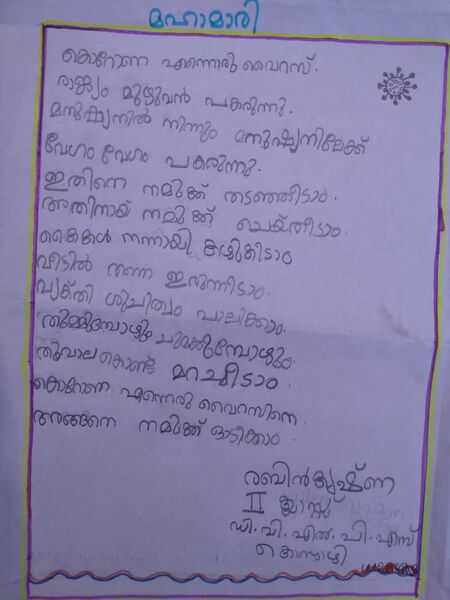 മഹാമാരി
കൊറോണ എന്നൊരു വൈറസ്.
രാജ്യം മുഴുവൻ പകരുന്നു.
മനുഷ്യനിൽ നിന്നും മനുഷ്യനിലേക്ക്
വേഗം വേഗം പകരുന്നു.
ഇതിനെ നമുക്ക് തടഞ്ഞീടാം.
അതിനായ് നമുക്ക് ചെയ്തീടാം.
കൈകൾ നന്നായി കഴുകീടാം
വീടിൽ തന്നെ ഇരുന്നീടാം.
വ്യക്തി ശുചിത്വം പാലിക്കാം.
തുമ്മുമ്പോഴും ചുമക്കുമ്പോഴും
തുവാല കൊണ്ട് മറച്ചീടാം.
കൊറോണ എന്നൊരു വൈറസിനെ.
അങ്ങനെ നമുക്ക് ഓടിക്കാം.
രബിൻകൃഷ്ണ
II ക്ലാസ്സ്
ഡി.വി.എൽ.പി.എസ്